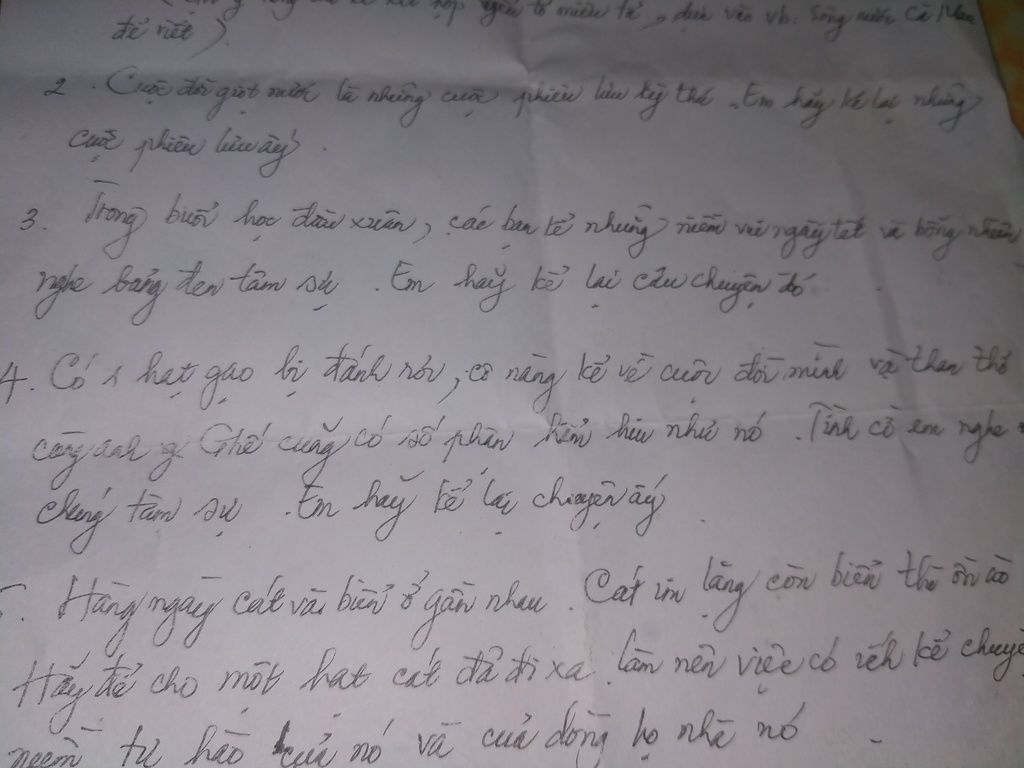 kể kết hợp yếu tố miêu tả, dựa vào vb: Sông nước Cà Mau
để viết)
2. Cuộc đời giọt nước là những cuộc phiêu lưu kỳ thú. Em hãy kể lại những
cuộc phiêu lưu ấy
3. Trong buổi học đầu xuân, các bạn kể những niềm vui ngày tết và bỗng nhiên
nghe bảng đen tâm sự. Em hãy kể lại câu chuyện đó
4. Có 1 hạt gạo bị đánh rơi, cô nàng kể về cuộc đời mình và than thở
cùng anh g. Ghế cũng có số phận hẩm hiu như nó. Tình cờ em nghe
chúng tâm sự. Em hãy kể lại chuyện ấy.
5. Hàng ngày cát và biển ở gần nhau. Cát im lặng còn biển thì ồn ào
Hãy để cho một hạt cát đã đi xa làm nên việc có ích kể chuyện
niềm tự hào của nó và của dòng họ nhà nó.